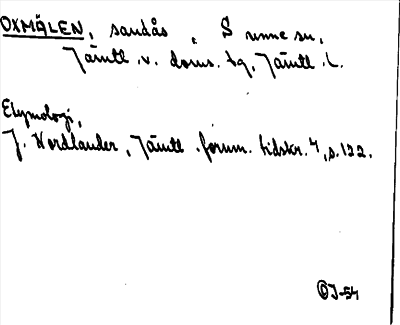 OXMÅLEN, sandås, Sunne sn,
Jämtl. v. doms. tg, Jämtl. l.
Etymologi,
J. Nordlander, Jämtl. fornm. tidskr. 4, s. 122.
OJ-54